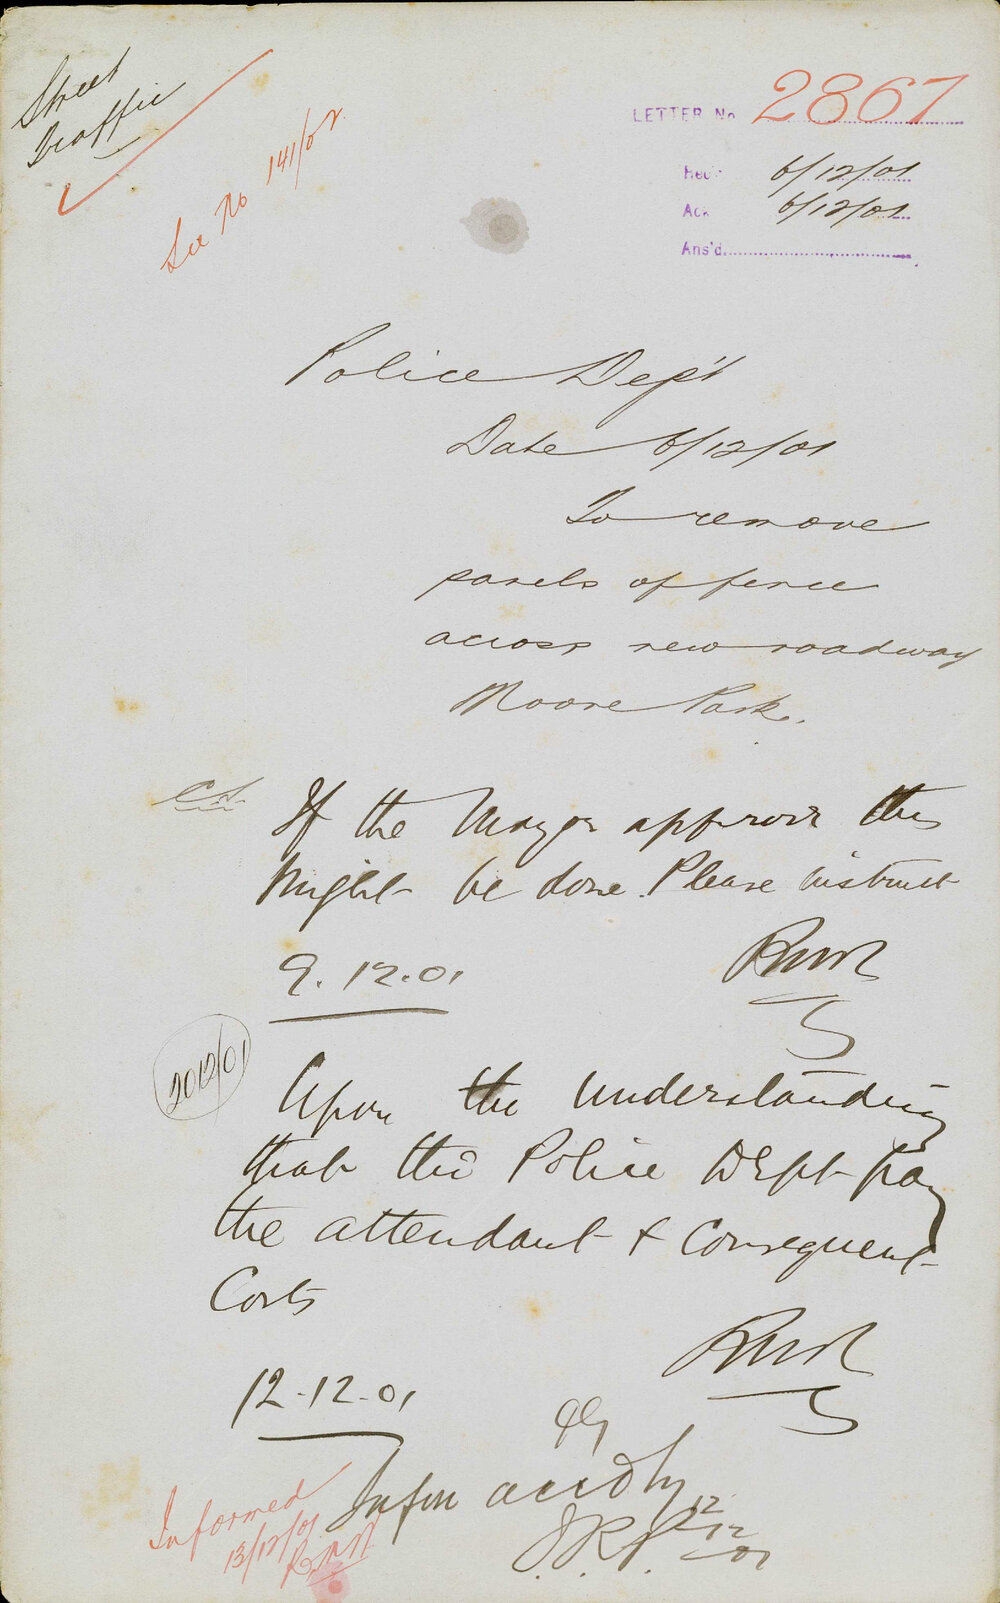 Street
Traffic
See No 141/02
LETTER No 2867
Rec. 6/12/01
Ack 6/12/01
Ans'd
Police Dep't
Date 6/12/01
To remove
panels of fence
across new roadway
Moore Park.
If the Mayor approves this
might be done. Please instruct
9.12.01
2012/01
Upon the understanding
that the Police Dept pay
the attendant & consequent
Costs
12-12-01
Infm accdly
12
12
01
Informed
13/12/01